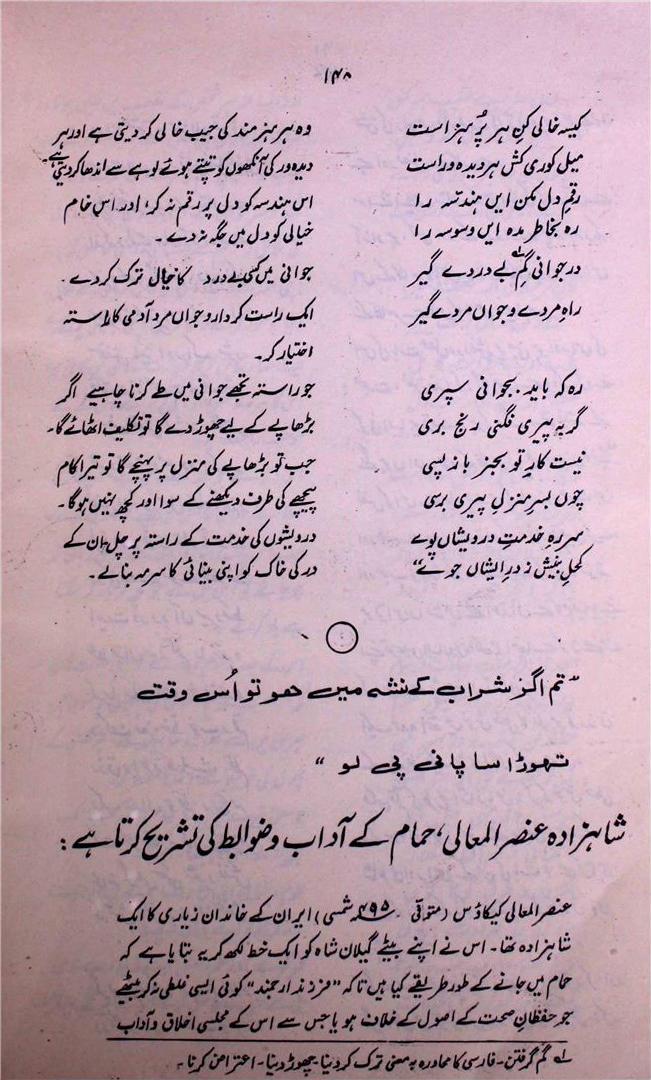 ۱۴۸
کیسہ خالی کن ہر پُر ہنر است
وہ ہر ہنرمند کی جیب خالی کر دیتی ہے اور ہر
میل کوری کش ہر دیدہ ور است
دیدہ ور کی آنکھوں کو تپتے ہوئے لوہے سے اندھا کر دیتی ہے۔
رقمِ دل مکن ایں ہندسہ را
اس ہندسہ کو دل پر رقم نہ کر؛ اور اس خام
رہ بخاطر مدہ ایں وسوسہ را
خیالی کو دل میں جگہ نہ دے۔
در جوانی گم ؎۱ بے دردے گیر
جوانی میں کسی بے درد کا خیال ترک کر دے۔
راہِ مردے و جواں مردے گیر
ایک راست کردار و جواں مرد آدمی کا راستہ
اختیار کر۔
رہ کہ باید بجوانی سپری
جو راستہ تجھے جوانی میں طے کرنا چاہیے اگر
گر بہ پیری فگنی رنج بری
بڑھاپے کے لیے چھوڑ دے گا تو تکلیف اٹھائے گا۔
نیست کارِ تو بجز باز پسی
جب تو بڑھاپے کی منزل پر پہنچے گا تو تیرا کام
چوں بسرِ منزلِ پیری برسی
پیچھے کی طرف دیکھنے کے سوا اور کچھ نہیں ہوگا۔
سر رہ خدمتِ درویشاں پوے
درویشوں کی خدمت کے راستہ پر چل، ان کے
کحلِ بینش ز درِ ایشاں جوے“
در کی خاک کو اپنی بینائی کا سرمہ بنا لے۔
”تم اگر شراب کے نشہ میں ھو تو اُس وقت
تھوڑا سا پانی پی لو“
شاہزادہ عنصر المعالی، حمام کے آداب و ضوابط کی تشریح کرتا ہے:
عنصر المعالی کیکاؤس (متوفی ۴۹۵ شمسی) ایران کے خاندان زیاری کا ایک
شاہزادہ تھا۔ اس نے اپنے بیٹے گیلان شاہ کو ایک خط لکھ کر یہ بتایا ہے کہ
حمام میں جانے کے طور طریقے کیا ہیں تاکہ ”فرزند ارجمند“ کوئی ایسی غلطی نہ کر بیٹھے
جو حفظانِ صحت کے اصول کے خلاف ہو یا جس سے اس کے مجلسی اخلاق و آداب
؎۱ گم گرفتن۔ فارسی کا محاورہ بہ معنی ترک کر دینا۔ چھوڑ دینا۔ اعتراض کرنا۔